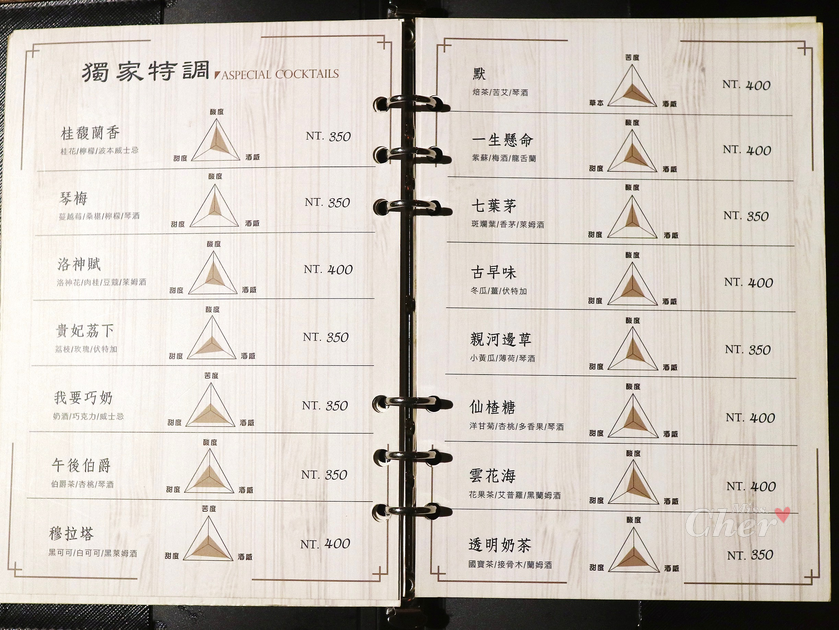 獨家特調 ASPECIAL COCKTAILS
桂馥蘭香
桂花/檸檬/波本威士忌
酸度
甜度 酒感
NT. 350
琴梅
蔓越莓/桑椹/檸檬/琴酒
酸度
甜度 酒感
NT. 350
洛神賦
洛神花/肉桂/豆蔻/萊姆酒
酸度
甜度 酒感
NT. 400
貴妃荔下
荔枝/玫瑰/伏特加
酸度
甜度 酒感
NT. 350
我要巧奶
奶酒/巧克力/威士忌
苦度
甜度 酒感
NT. 350
午後伯爵
伯爵茶/杏桃/琴酒
酸度
甜度 酒感
NT. 350
穆拉塔
黑可可/白可可/黑萊姆酒
苦度
甜度 酒感
NT. 400
默
焙茶/苦艾/琴酒
苦度
草本 酒感
NT. 400
一生懸命
紫蘇/梅酒/龍舌蘭
酸度
甜度 酒感
NT. 400
七葉茅
斑斕葉/香茅/萊姆酒
酸度
甜度 酒感
NT. 350
古早味
冬瓜/薑/伏特加
酸度
甜度 酒感
NT. 400
親河邊草
小黃瓜/薄荷/琴酒
酸度
甜度 酒感
NT. 350
仙楂糖
洋甘菊/杏桃/多香果/琴酒
酸度
甜度 酒感
NT. 400
雲花海
花果茶/艾普羅/黑蘭姆酒
酸度
甜度 酒感
NT. 400
透明奶茶
國寶茶/接骨木/蘭姆酒
酸度
甜度 酒感
NT. 350
Cher